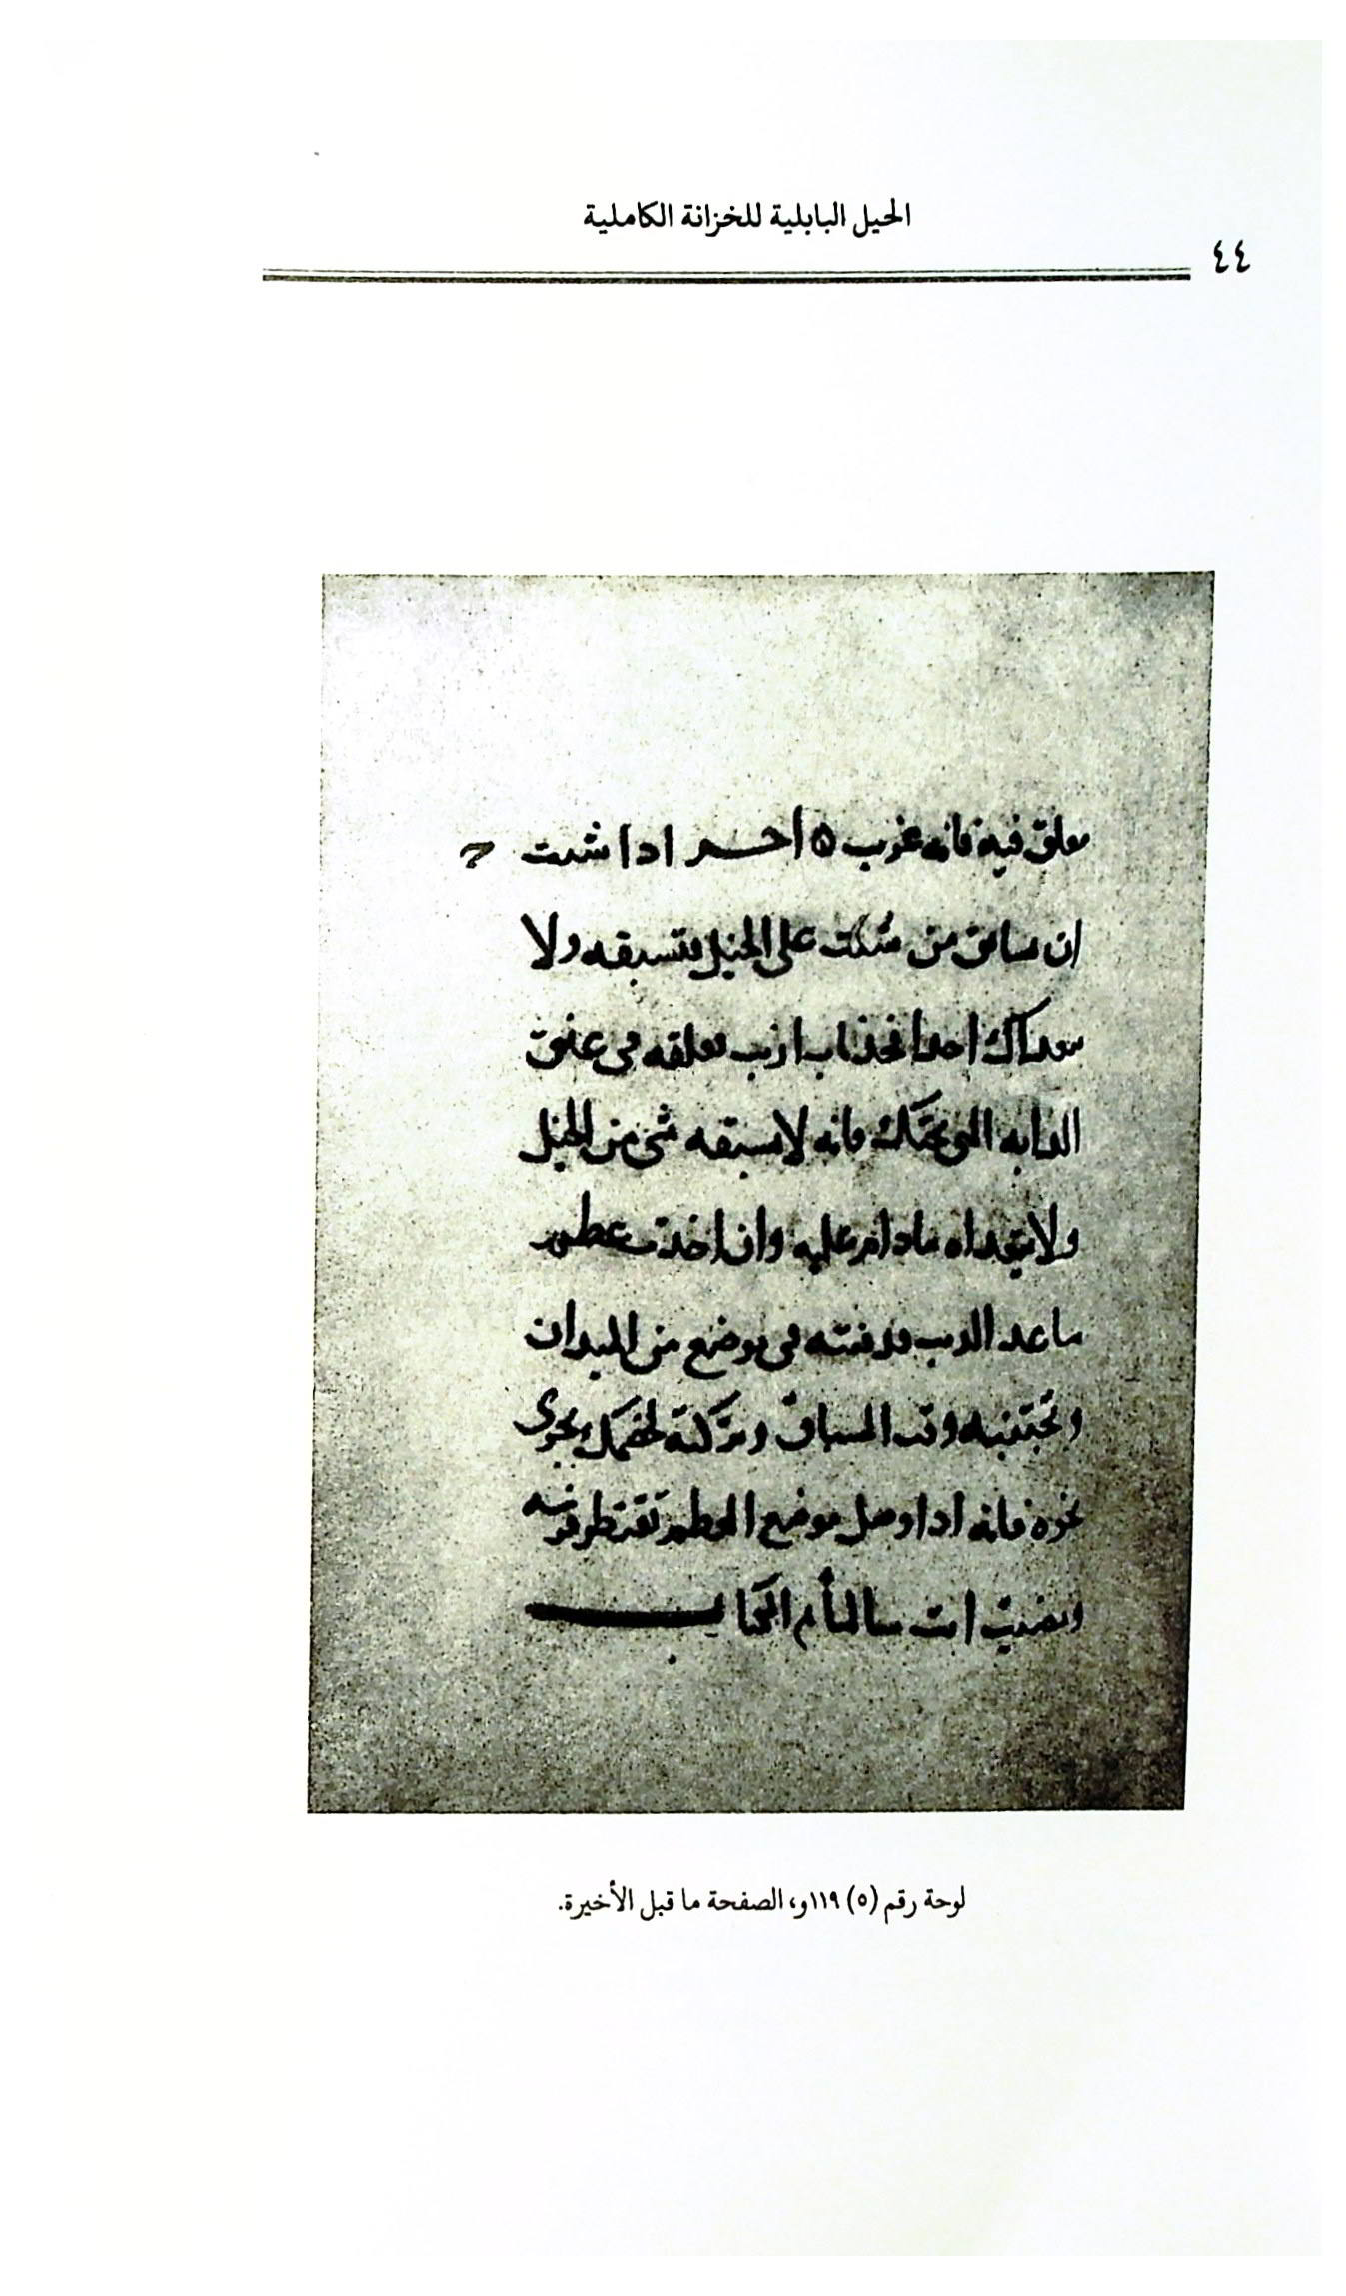 الحيل البابلية للخزانة الكاملية
٤٤
معلق فيه فانه غريب ه اخـر اذا شئت
ان تسابق من شئت على الخيل فتسبقه ولا
يتعداك احد فخذ ناب ارنب تعلقه في عنق
الدابه التي تحتك فانه لا يسبقه شي من الخيل
ولا يتعداه ما دام عليه وان اخذت عظم
ساعد الدب ودفنته في موضع من الميدان
وتجتنبه وقت السباق وتركته لخصمك ويجوى
نحوه فانه اذا وصل موضع العظم تقنطر فرسه
وتمضي انت سالما تم الكتاب
لوحة رقم (٥) ١١٩و، الصفحة ما قبل الأخيرة.